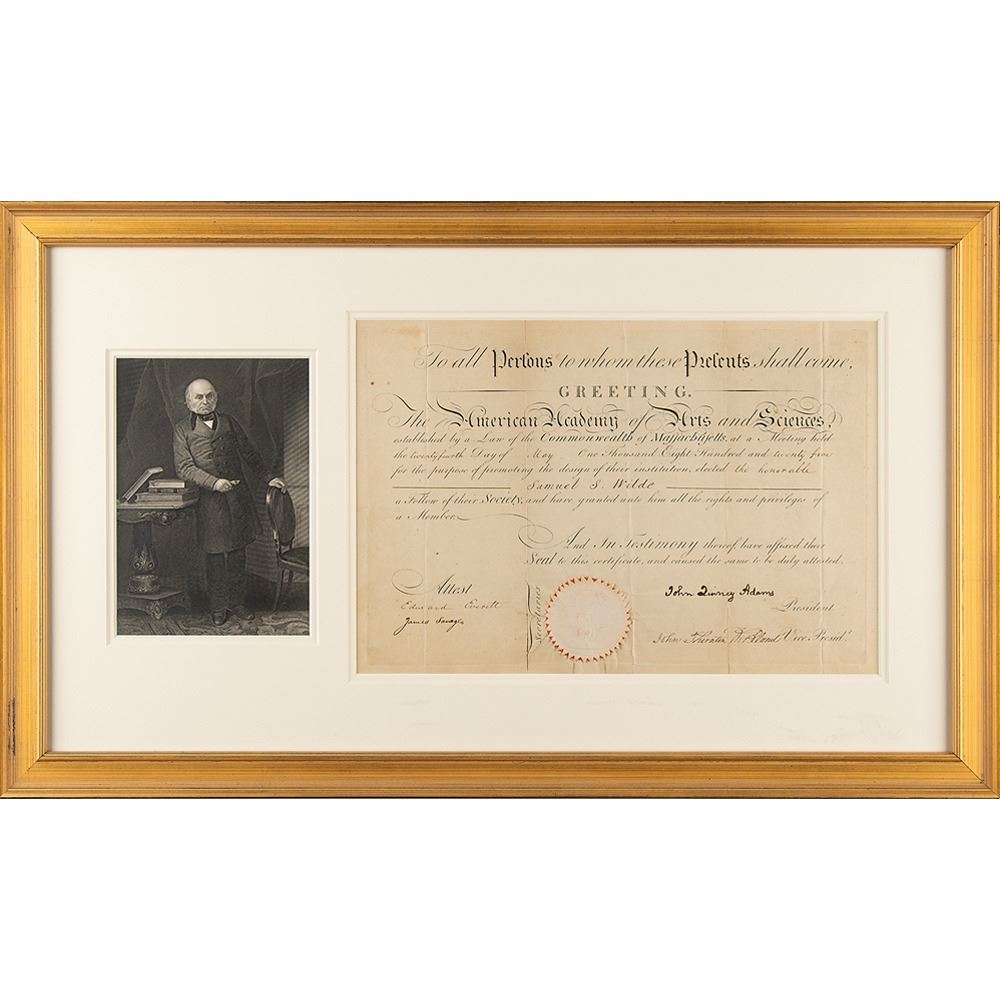 To all Persons to whom these Presents shall come,
GREETING.
The American Academy of Arts and Sciences,
established by a Law of the Commonwealth of Massachusetts, at a Meeting held
the twentyfourth Day of May One Thousand Eight Hundred and twenty five
for the purpose of promoting the design of their institution, elected the honorable
Samuel S. Wilde
a Fellow of their Society, and have granted unto him all the rights and privileges of
a Member.
And In Testimony thereof, have affixed their
Seal to this certificate, and caused the same to be duly attested.
Attest
Edward Everett
James Savage
Secretaries
John Quincy Adams
President
John Thornton Kirkland Vice Presidt.